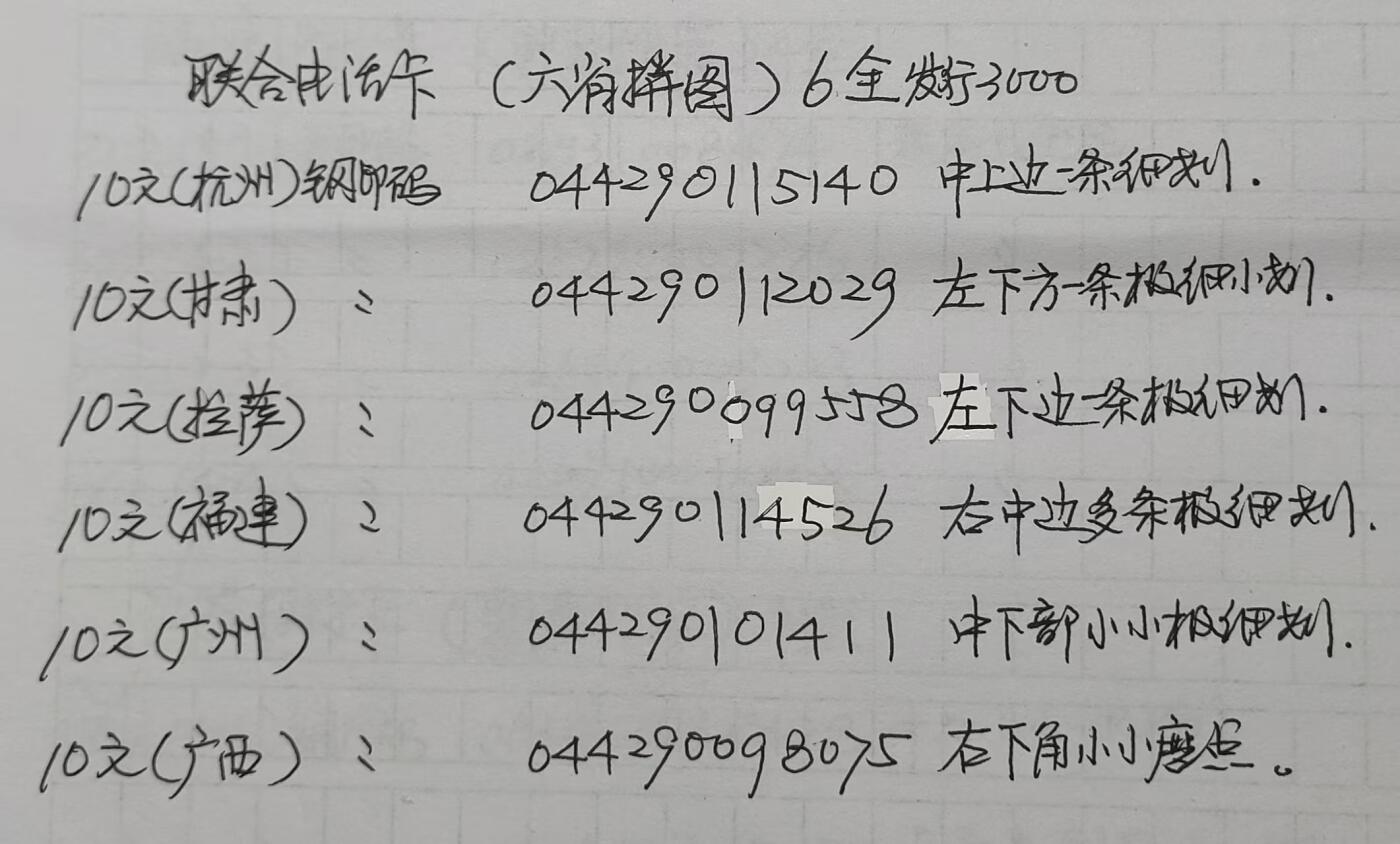 联合电话卡 (六省拼图) 6全发行3000
10元(杭州)钢印码 044290115140 中上边一条细划.
10元(甘肃) 〃 044290112029 左下方一条极细小划.
10元(拉萨) 〃 044290099558 左下边一条极细划.
10元(福建) 〃 044290114526 右中边多条极细划.
10元(广州) 〃 044290101411 中下部小小极细划.
10元(广西) 〃 044290098075 右下角小小磨点。